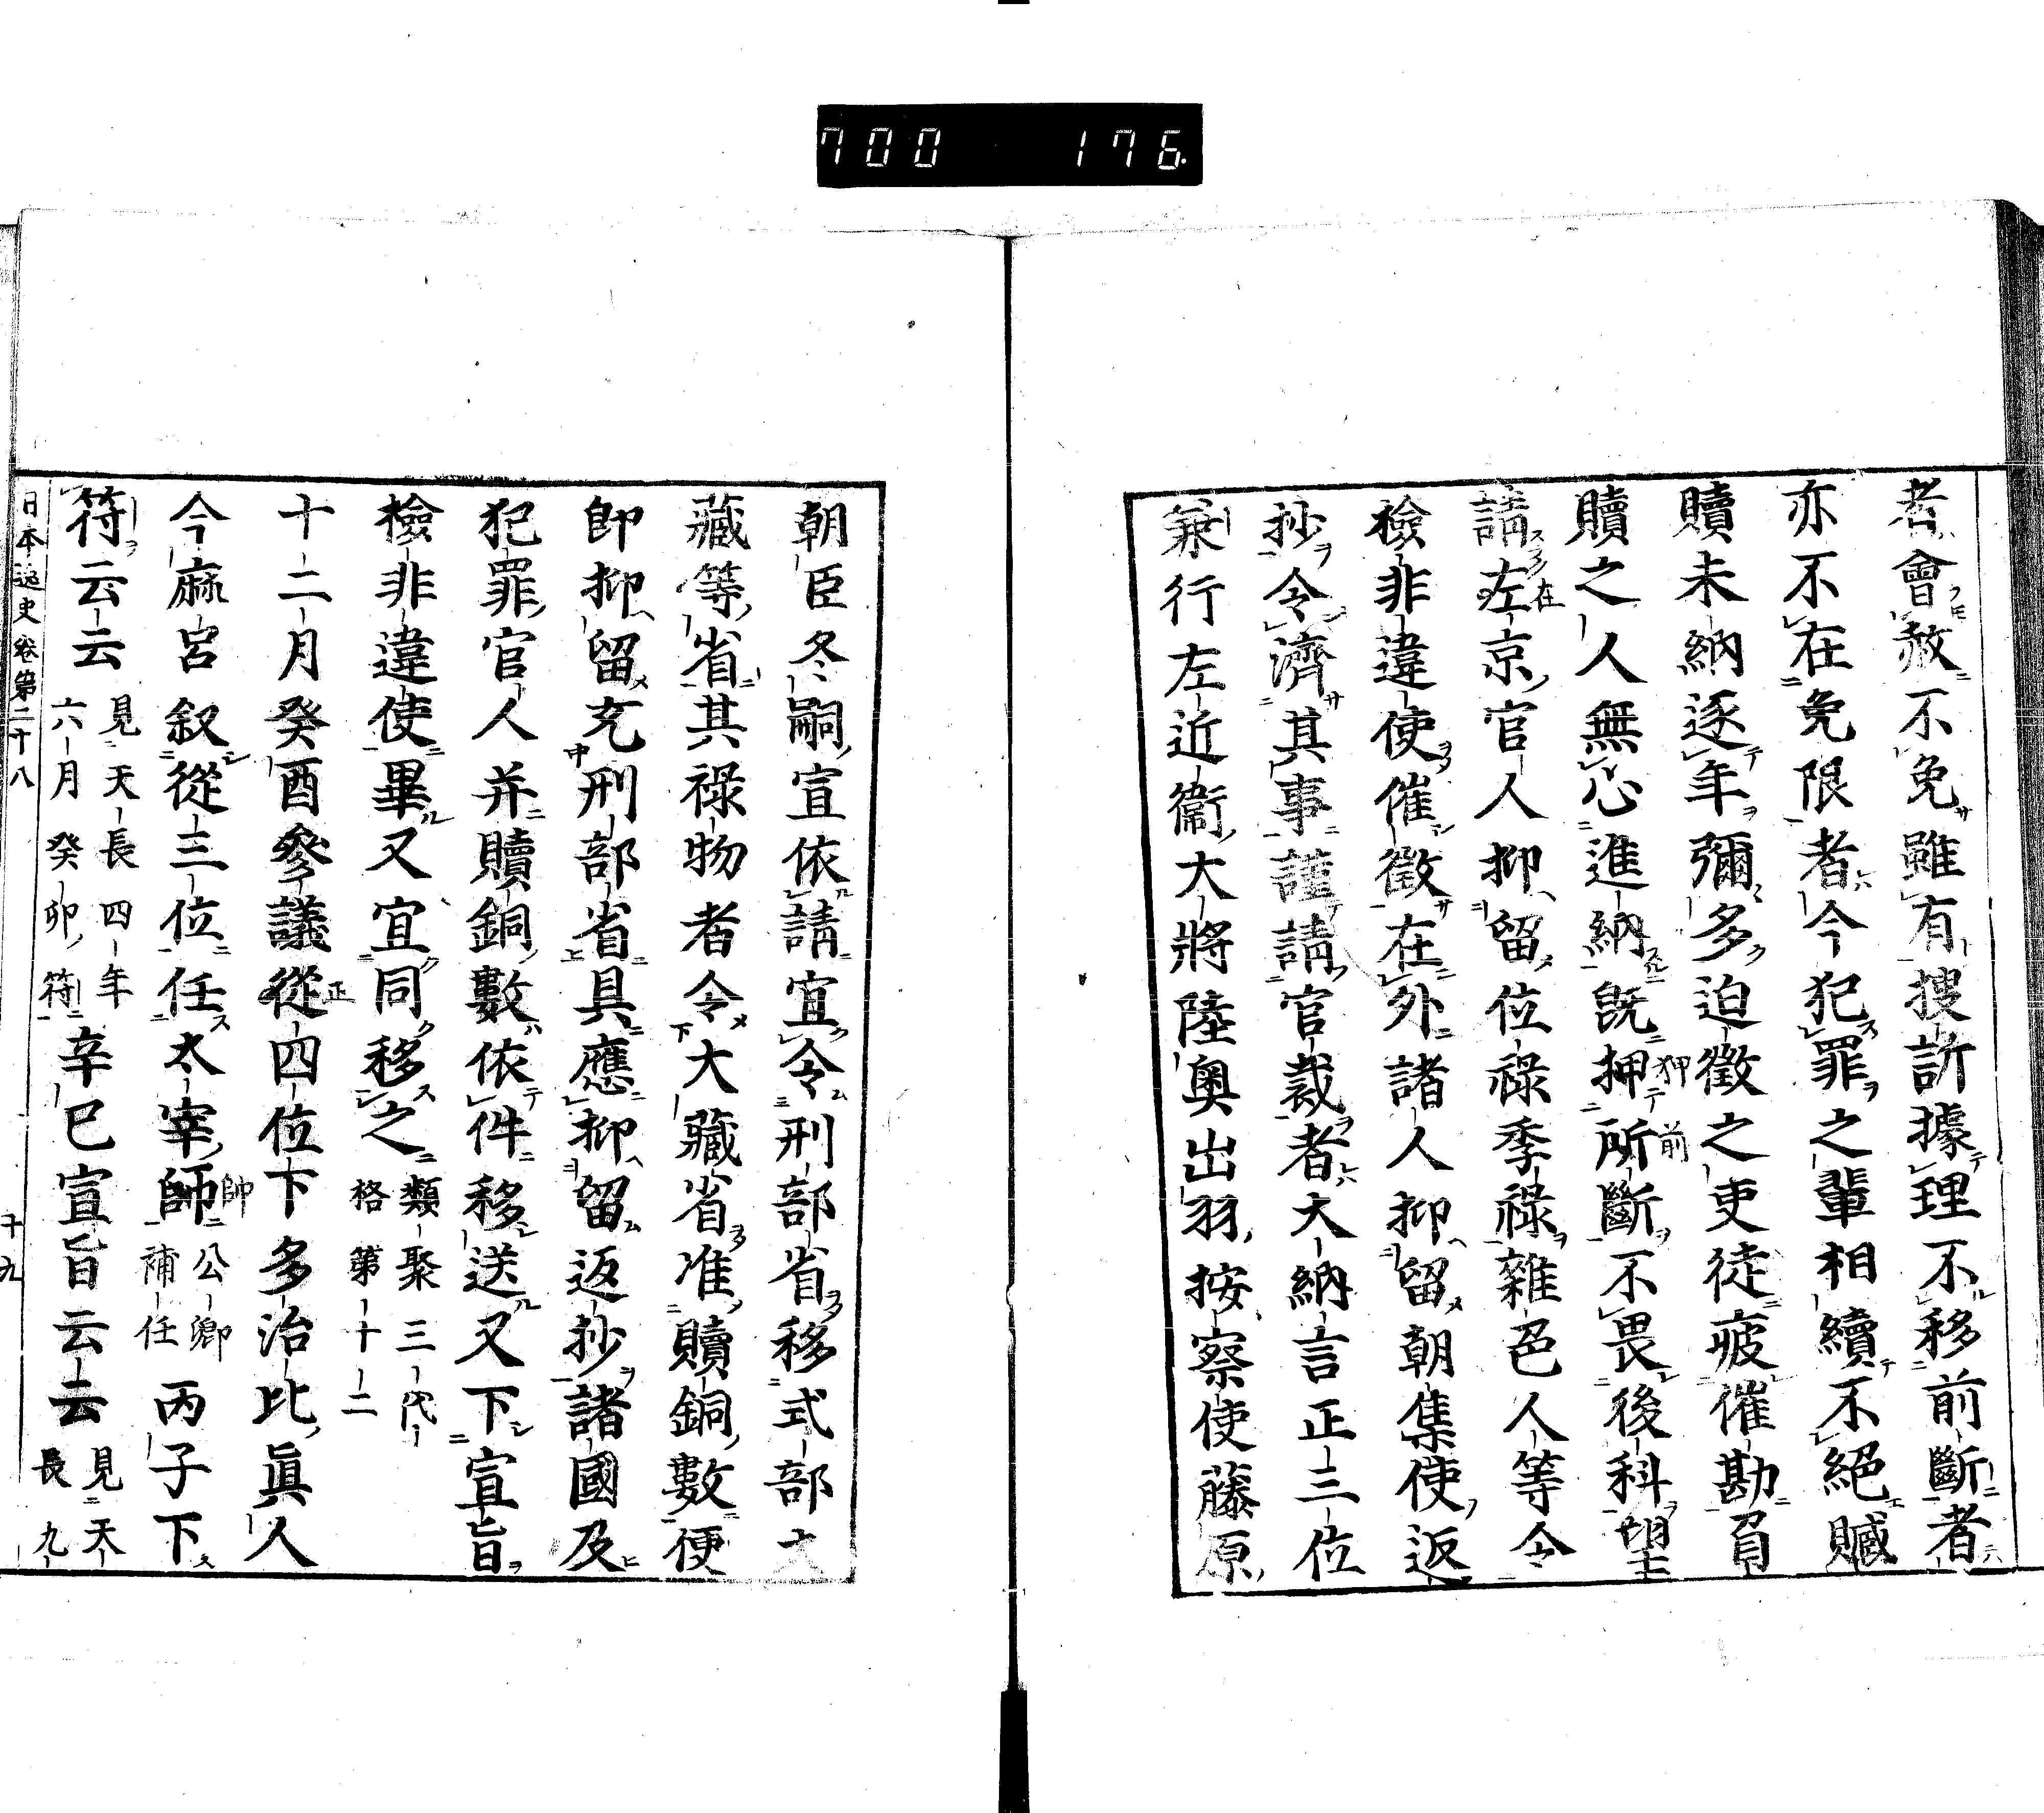 700 176
者會赦不免雖有捜訴據理不移前斷者
亦不在免限者今犯罪之輩相續不絕贓
贖未納逐年彌多迫徵之吏徒疲催勘負
贖之人無心進納既押所斷不畏後科望
請左京官人抑留位祿季祿雜色人等令
檢非違使催徵在外諸人抑留朝集使返
抄令濟其事謹請官裁者大納言正三位
兼行左近衞大將陸奧出羽按察使藤原
朝臣冬嗣宣依請宜令刑部省移式部大
藏等省其祿物者令大藏省准贖銅數便
卽抑留充刑部省具應抑留返抄諸國及
犯罪官人并贖銅數依件移送又下宣旨
檢非違使畢又宜同移之類聚三代格第十二
十二月癸酉參議從四位下多治比眞人
今麻呂叙從三位任太宰師公卿補任丙子下
符云云見天長四年六月癸卯符辛巳宣旨云云見天長九
日本逸史卷第二十八 十九